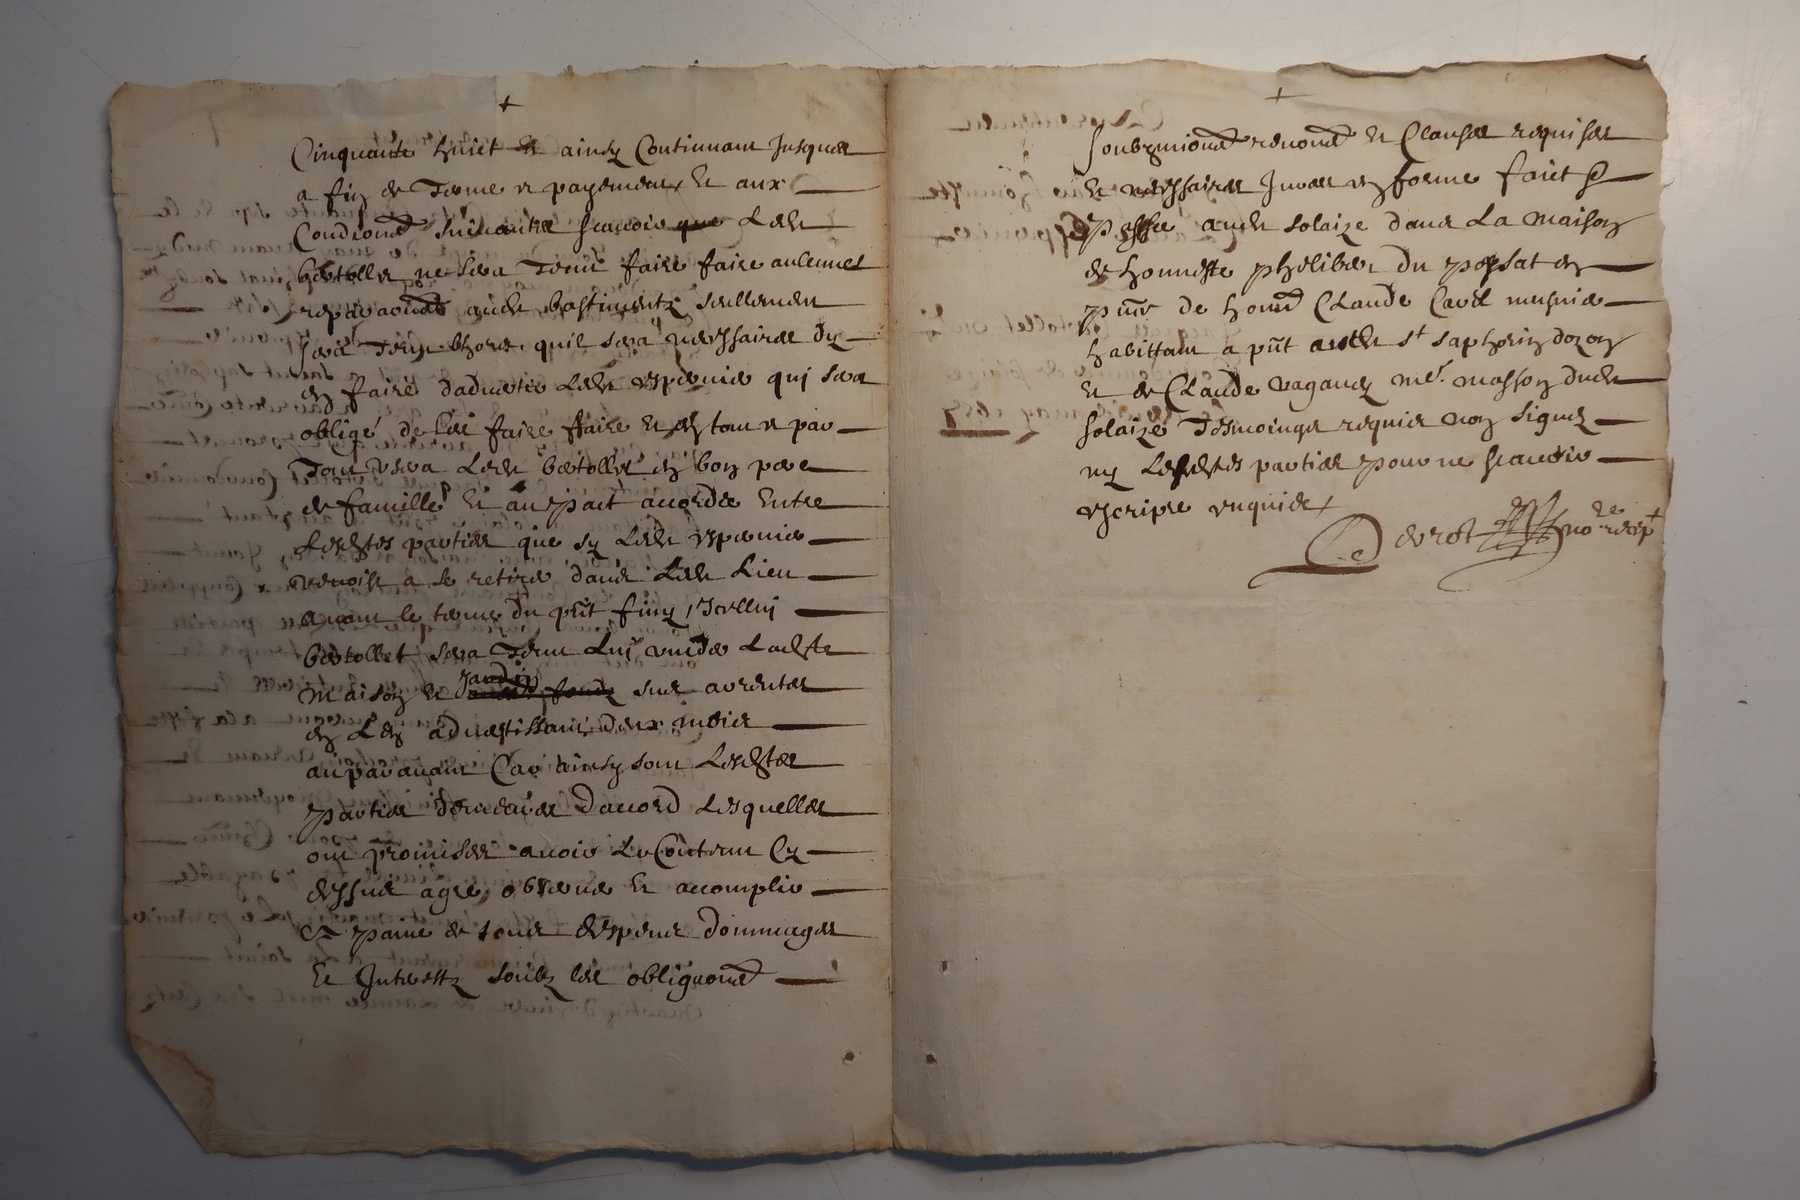 Cinquante huict et ainsy Continuant Jusques
a fin de terme et payement, Et aux
Conditions suivantes scavoir que Ledt
bertollet ne sera tenu faire faire aulcunes
reparaons audt bastimentz seullement
sera tenu lhors quil sera necessaires dy
en faire dadvertir Ledt espernier qui sera
obligé de les faire ffaire et en tout et par
tout usera Ledt bertollet en bon pere
de famille Et au pact accordé Entre
Lesdites parties que sy Ledt espernier
venoist a se retirer dans Ledt Lieu
avant le terme du pnt finy, Icelluy
bertollet sera tenu Luy vuider Ladste
Maison et jardin sus arentes
en Len advertissant deux mois
auparavant Car ainsy sont Lesdites
parties demeures daccord Lesquelles
ont promises avoir Le Contenu Cy
dessus agre, observer Et accomplir
a paine de tous despens dommages
Et Interestz soubz les obligaons
soubzmissions renons et Clauses requises
Et necessaires Jurees en forme faict &
passé audt solaize dans La maison
de honneste philiber du passat en
pnce de honnes Claude Cavet musnier
habittant a pnt audt st saphorin dozon
et de Claude vaganey me. masson dudt
solaize tesmoings requis non signez
ny Lesdites parties pour ne scavoir
escripre enquises
no.re recep